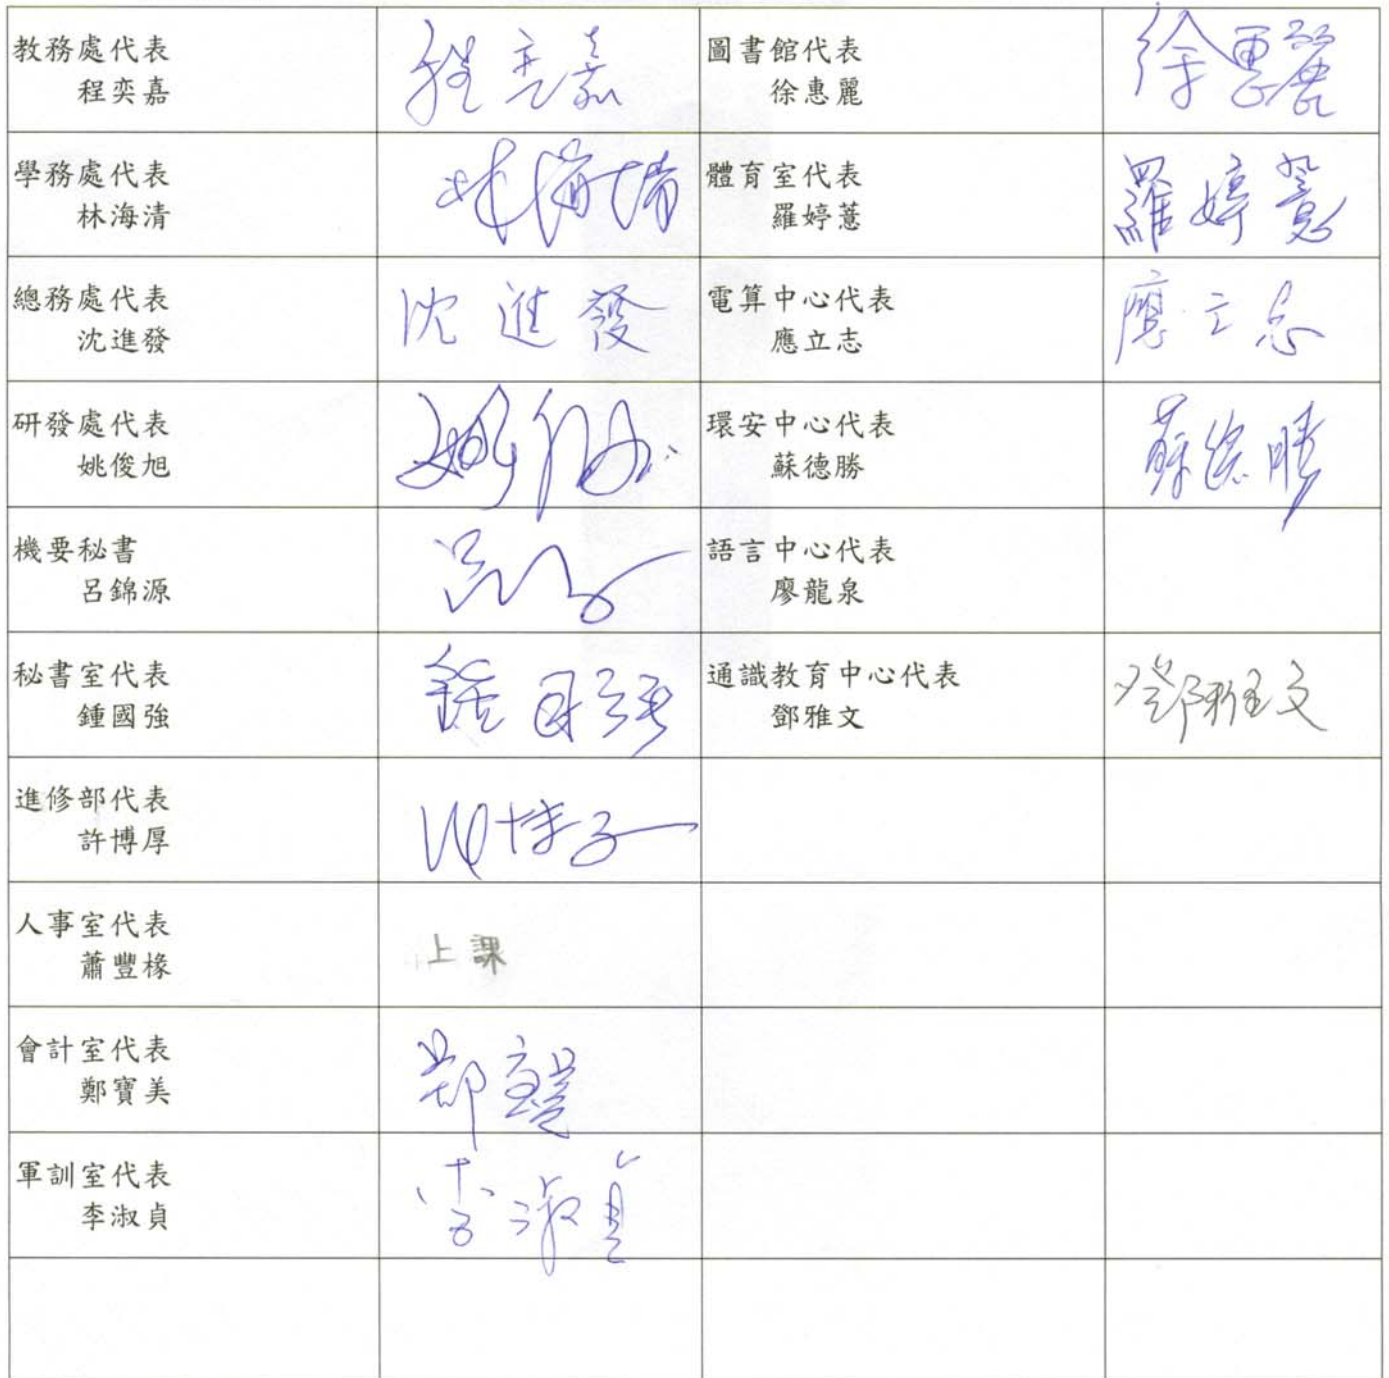 教務處代表
程奕嘉
程奕嘉
圖書館代表
徐惠麗
徐惠麗
學務處代表
林海清
林海清
體育室代表
羅婷薏
羅婷薏
總務處代表
沈進發
沈進發
電算中心代表
應立志
應立志
研發處代表
姚俊旭
環安中心代表
蘇德勝
蘇德勝
機要秘書
呂錦源
語言中心代表
廖龍泉
秘書室代表
鍾國強
鍾国強
通識教育中心代表
鄧雅文
鄧雅文
進修部代表
許博厚
人事室代表
蕭豐椽
上課
會計室代表
鄭寶美
軍訓室代表
李淑貞
李淑貞